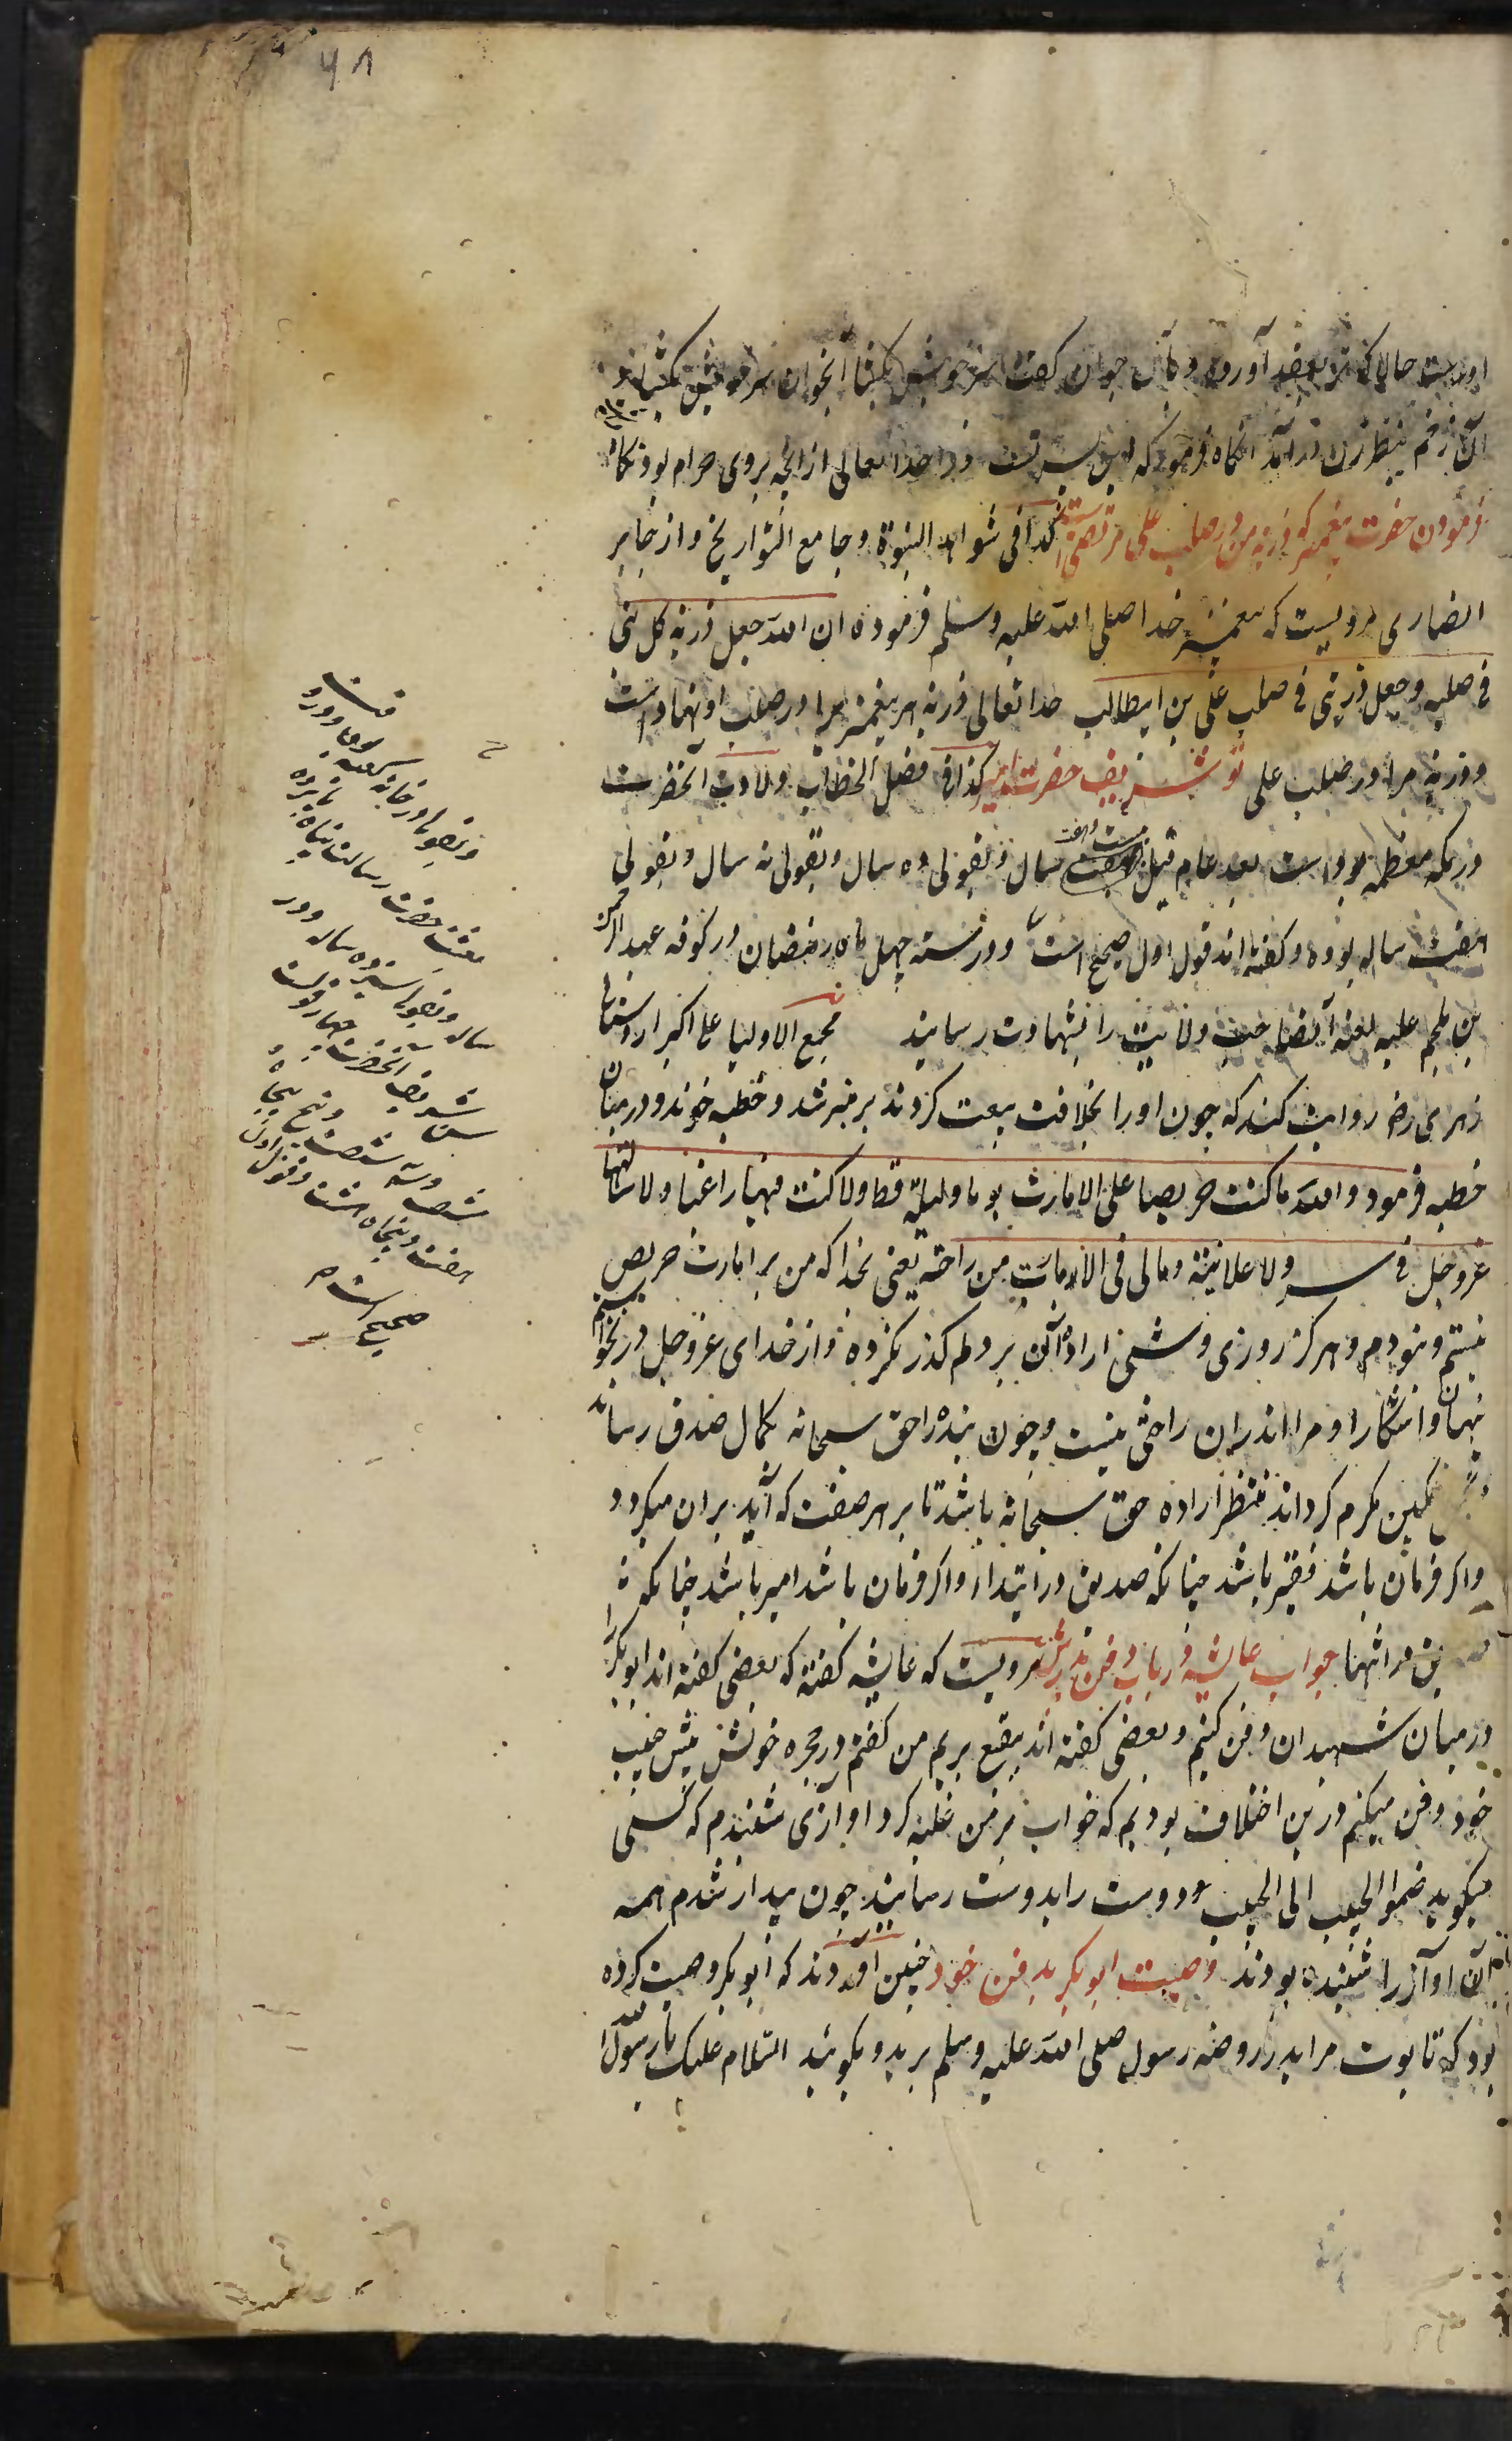 ۶۸
اوست حالا که بعقد آورده و بآن جوان گفت سر خویش بکشا آنجوان سر خویش بکشاد
آن زخم بنظر زن درآمد آنگاه فرمود که این پسر تست و ترا خدا تعالی از آنچه بروی حرام بود نگاه
فرمودن حضرت پیغمبر که ذریة من در صلب علی مرتضی است کذا فی شواهد النبوة و جامع التواریخ و از جابر
انصاری مرویست که پیغمبر خدا صلی الله علیه وسلم فرموده ان الله جعل ذریة کل نبی
فی صلبه وجعل ذریتی فی صلب علی بن ابیطالب خدا تعالی ذریة هر پیغمبر را در صلب او نهاده است
و ذریة مرا در صلب علی تو شریف حضرت امیر کذا فی فصل الخطاب ولادت آنحضرت
در مکه معظمه بوده است بعد عام فیل بیست وهفت سال و بقولی ده سال و بقولی نه سال و بقولی
هفت ساله بوده و گفته اند قول اول صحیح است و در سنه چهل ماه رمضان در کوفه عبدالرحمن
بن ملجم علیه لعنه آنصاحب ولایت را بشهادت رسانید مجمع الاولیا علی اکبر اردستانی
زهری رض روایت کند که چون او را بخلافت بیعت کردند بر منبر شد و خطبه خواند و درمیان
خطبه فرمود والله ما کنت حریصا علی الامارت یوما ولیلة قط ولا کنت فیها راغبا ولا سالتها
عزوجل فی سر ولا علانیة ومالی فی الامارت من راحة یعنی بخدا که من بر امارت حریص
نیستم و نبودم و هرگز روزی و شبی اراده آن بر دلم گذر نکرده و از خدای عزوجل درنخواستم
پنهان و آشکارا و مرا اندران راحتی نیست و چون بنده را حق سبحانه بکمال صدق رساند
تمکین مکرم گرداند منتظر اراده حق سبحانه باشد تا بر هر صفت که آید بران میگردد
و اگر فرمان باشد فقیر باشد چنانکه صدیق در ابتدا و اگر فرمان باشد امیر باشد چنانکه
در انتها جواب عایشه در باب دفن پدرش مرویست که عایشه گفته که بعضی گفته اند ابوبکر را
درمیان شهیدان دفن کنیم و بعضی گفته اند ببقیع بریم من گفتم در حجره خویش پیش حبیب
خود دفن میکنم درین اختلاف بودیم که خواب بر من غلبه کرد اوازی شنیدم که کسی
میگوید ضموا الحبیب الی الحبیب دوست را بدوست رسانید چون بیدار شدم همه
آن اواز را شنیده بودند وصیت ابوبکر بدفن خود چنین آورده اند که ابوبکر وصیت کرده
بود که تابوت مرا بدر روضه رسول صلی الله علیه وسلم برید و بگوئید السلام علیک یا رسول الله
و بقولی در خانه کعبه
بعثت حضرت رسالت پناه پانزده
ساله و بقولی سیزده ساله بود در
سن شریف آنحضرت چهار قولست
شصت و سه شصت و پنج پنجاه و
هفت و پنجاه هشت و قول اول
صحیح است